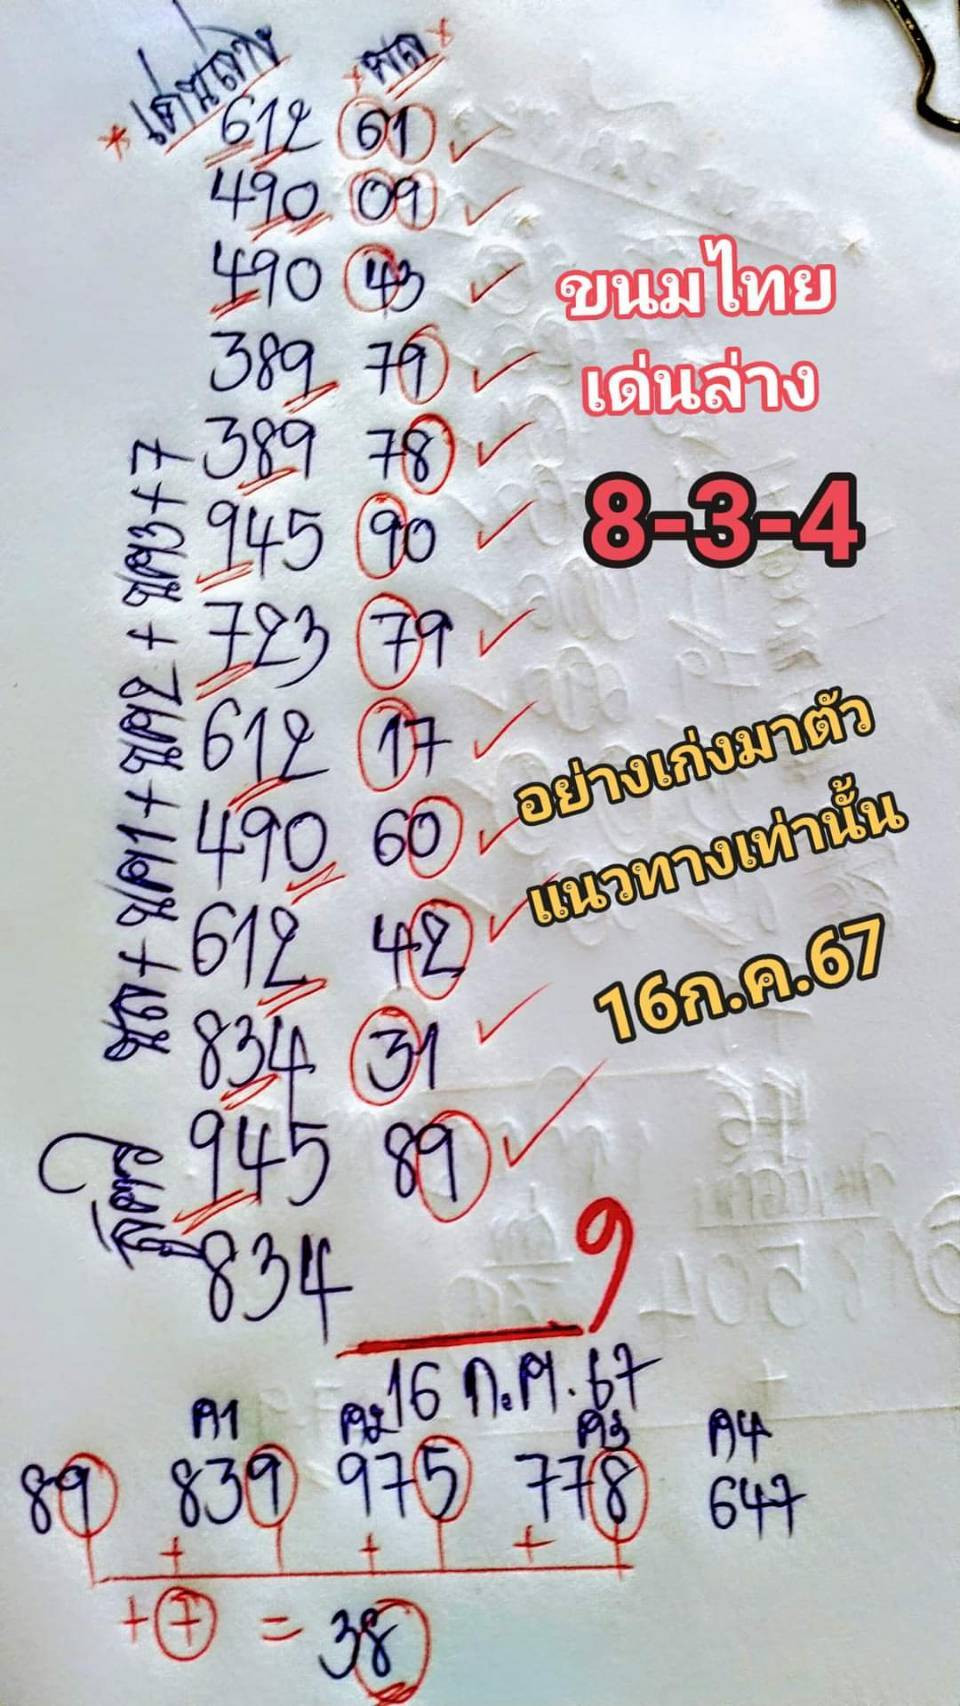 *เด่นล่าง *ผล*
612 61 ✓
490 09 ✓
490 43 ✓
389 79 ✓
389 78 ✓
945 90 ✓
723 79 ✓
612 17 ✓
490 60 ✓
612 42 ✓
834 31 ✓
945 89 ✓
834 ?
ขนมไทย
เด่นล่าง
8-3-4
อย่างเก่งมาตัว
แนวทางเท่านั้น
16ก.ค.67
สูตร
นล+นค1+นค2+นค3+7
16 ก.ค.67
ค1 ค2 ค3 ค4
89 839 975 778 647
+ + +
+7 = 38